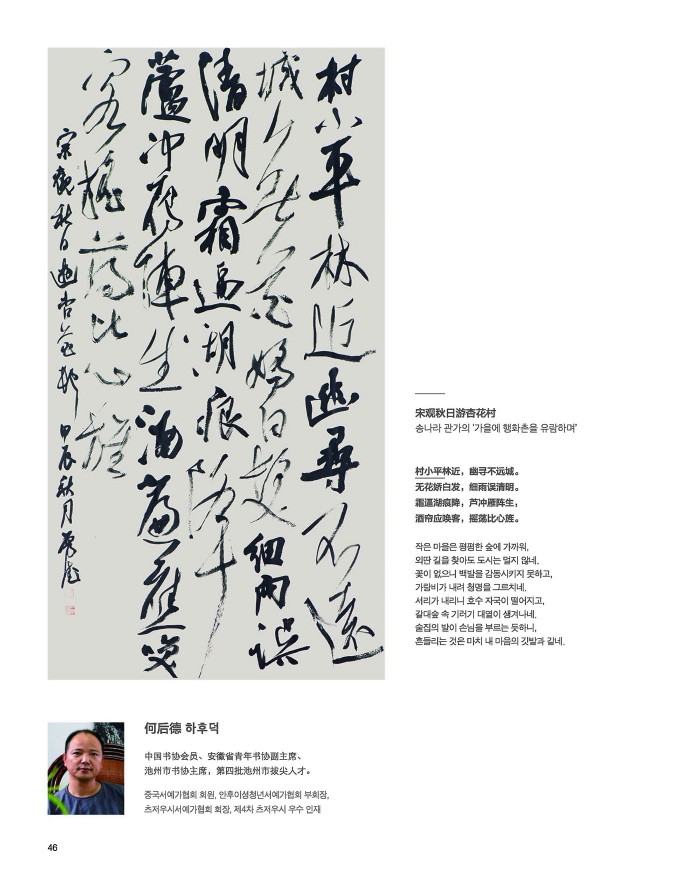 村小平林近幽尋不遠
城无花嬌白髮細雨誤
清明霜逼湖痕降
蘆冲雁陣生酒帘應喚
客搖蕩比心旌
宋觀秋日遊杏花村 甲辰秋月
宋观秋日游杏花村
송나라 관가의 '가을에 행화촌을 유람하며'
村小平林近，幽寻不远城。
无花娇白发，细雨误清明。
霜逼湖痕降，芦冲雁阵生，
酒帘应唤客，摇荡比心旌。
작은 마을은 평평한 숲에 가까워,
외딴 길을 찾아도 도시는 멀지 않네.
꽃이 없으니 백발을 감동시키지 못하고,
가랑비가 내려 청명을 그르치네.
서리가 내리니 호수 자국이 떨어지고,
갈대숲 속 기러기 대열이 생겨나네.
술집의 발이 손님을 부르는 듯하니,
흔들리는 것은 마치 내 마음의 깃발과 같네.
何后德 하후덕
中国书协会员、安徽省青年书协副主席、
池州市书协主席，第四批池州市拔尖人才。
중국서예가협회 회원, 안후이성청년서예가협회 부회장,
츠저우시서예가협회 회장, 제4차 츠저우시 우수 인재
46